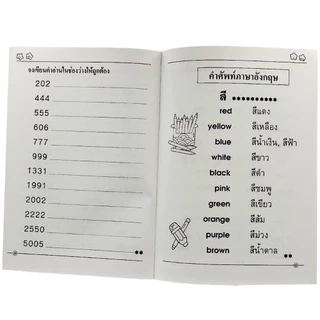 จงเขียนคำอ่านในช่องว่างให้ถูกต้อง
202
444
555
606
777
999
1331
1991
2002
2222
2550
5005
คำศัพท์ภาษาอังกฤษ
สี ..........
red สีแดง
yellow สีเหลือง
blue สีน้ำเงิน, สีฟ้า
white สีขาว
black สีดำ
pink สีชมพู
green สีเขียว
orange สีส้ม
purple สีม่วง
brown สีน้ำตาล